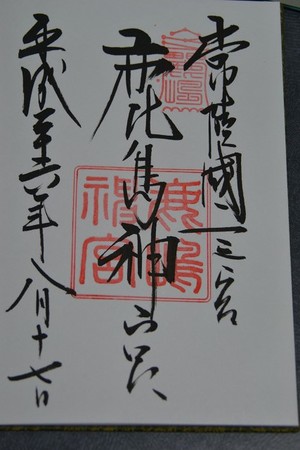 常陸國一之宮
鹿島神宮
平成二十六年八月十七日
鹿嶋
神宮